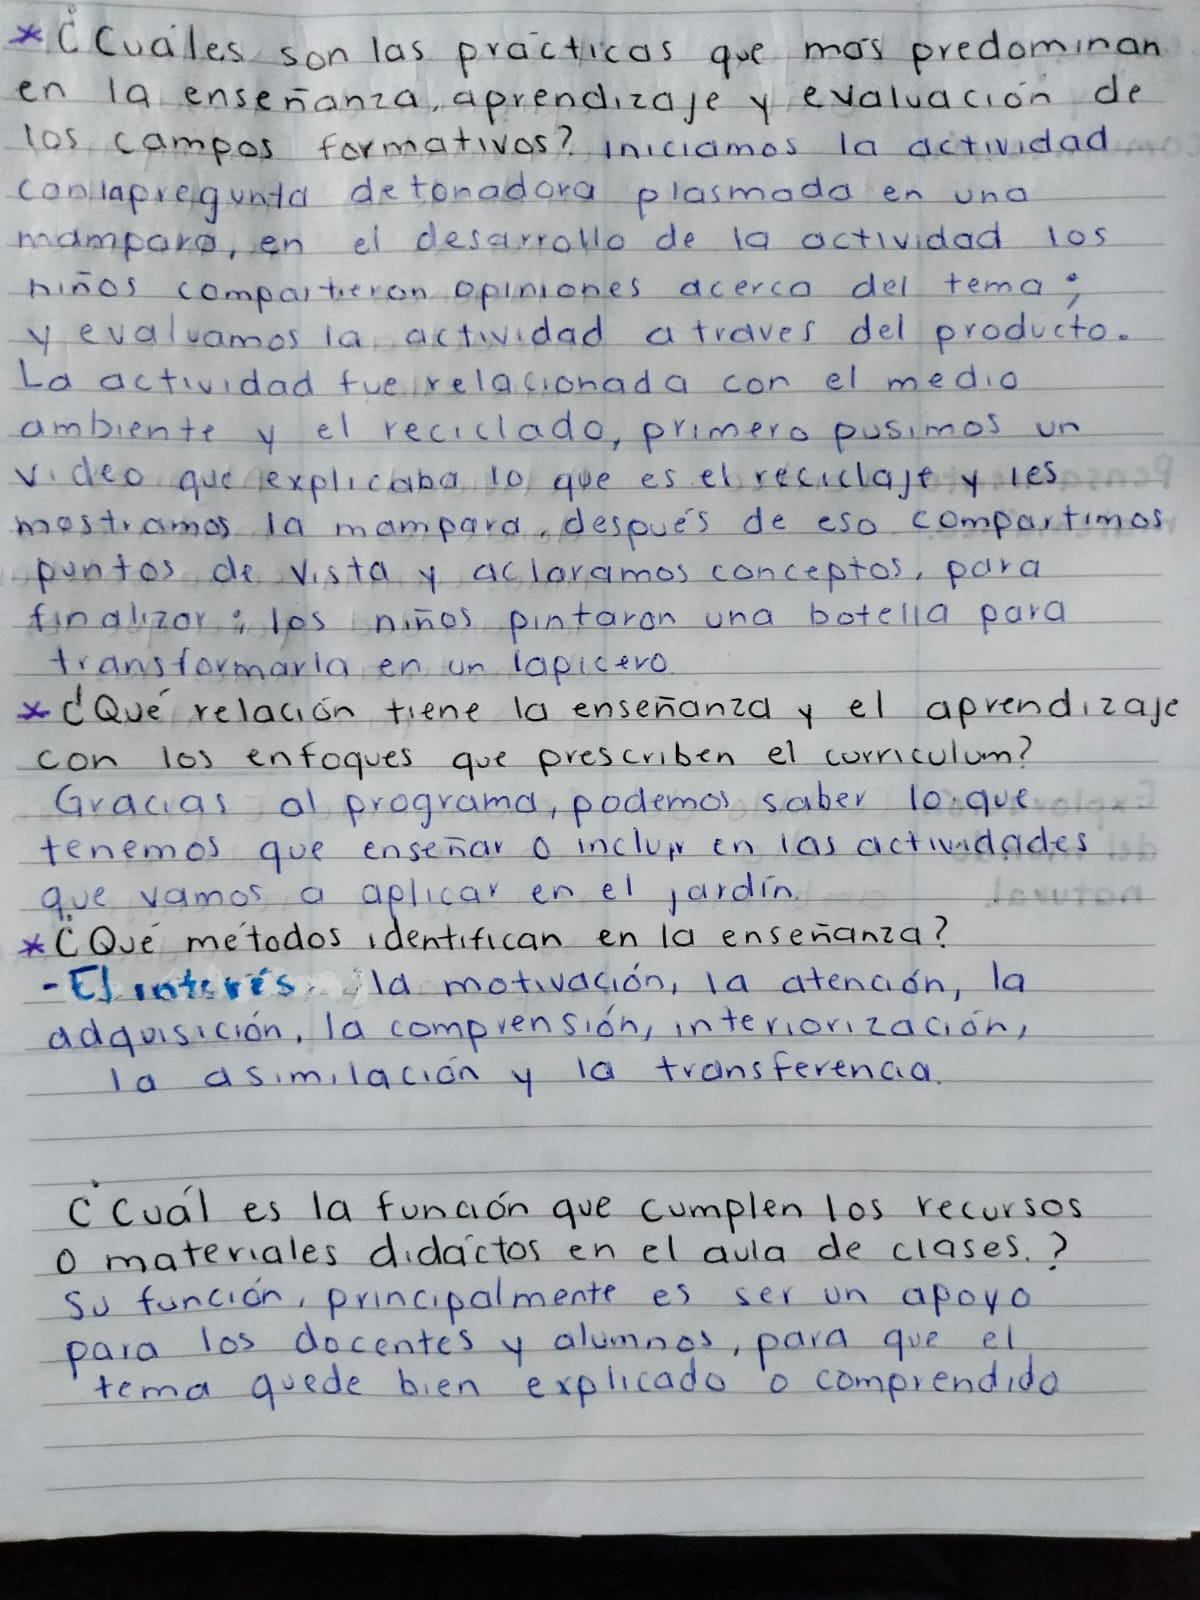 * ¿Cuáles son las prácticas que más predominan
en la enseñanza, aprendizaje y evaluación de
los campos formativos? iniciamos la actividad
con la pregunta detonadora plasmada en una
mampara, en el desarrollo de la actividad los
niños compartieron opiniones acerca del tema;
y evaluamos la actividad a traves del producto.
La actividad fue relacionada con el medio
ambiente y el reciclado, primero pusimos un
video que explicaba lo que es el reciclaje y les
mostramos la mampara, después de eso compartimos
puntos de vista y aclaramos conceptos, para
finalizar; los niños pintaron una botella para
transformarla en un lapicero.
* ¿Qué relación tiene la enseñanza y el aprendizaje
con los enfoques que prescriben el curriculum?
Gracias al programa, podemos saber lo que
tenemos que enseñar o incluir en las actividades
que vamos a aplicar en el jardín.
* ¿Qué métodos identifican en la enseñanza?
- El interés, la motivación, la atención, la
adquisición, la comprensión, interiorización,
la asimilación y la transferencia.
¿Cuál es la función que cumplen los recursos
o materiales didáctos en el aula de clases.?
Su función, principalmente es ser un apoyo
para los docentes y alumnos, para que el
tema quede bien explicado o comprendido